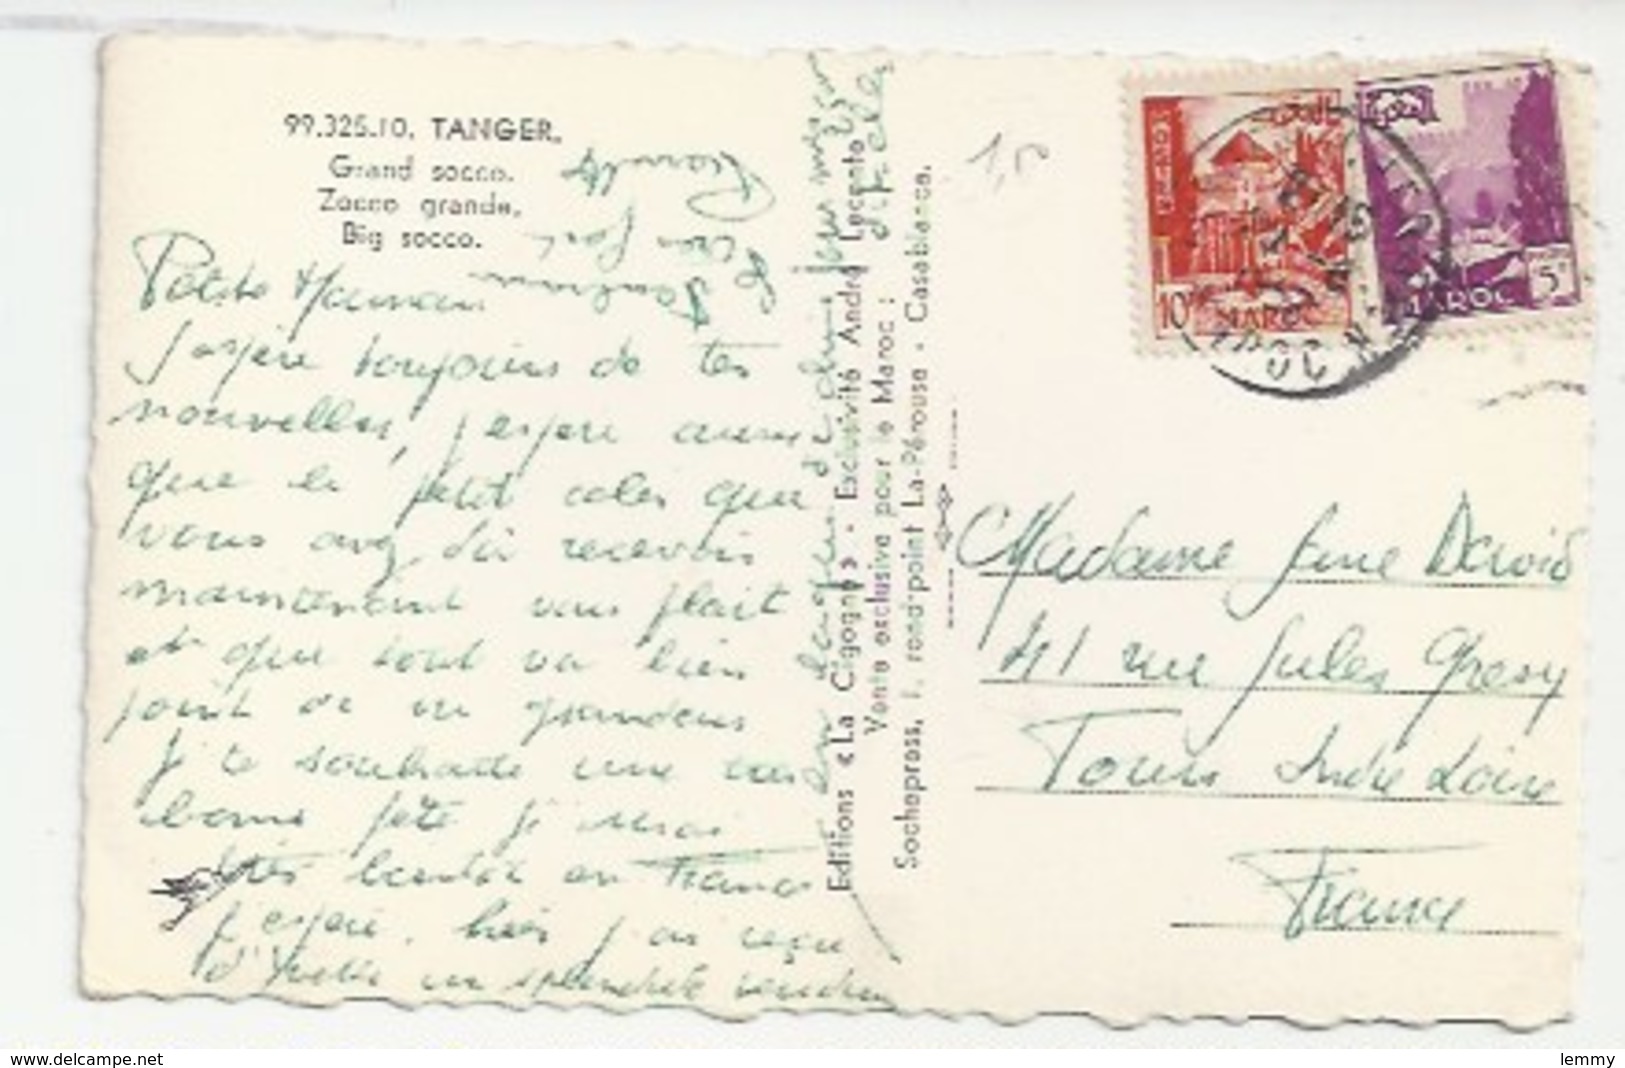 99.325.10. TANGER.
Grand socco.
Zocco grande.
Big socco.
Petite Maman
J'espère toujours de tes
nouvelles, j'espère aussi
que le petit colis que
vous avez dû recevoir
maintenant vous plait
et que tout va bien
point de vu grandeur
Je te souhaite une très
bonne fête je serai
très bientôt en France
j'espère. hier j'ai reçu
d'Yvette un splendide
Editions « La Cigogne » - Exclusivité André Leconte
Vente exclusive pour le Maroc :
Sochepress, 1, rond-point La-Pérouse - Casablanca.
1,50
POSTES
10F
MAROC
5F
MAROC
MAROC
Madame Jane David
41 rue Jules Gresy
Tours Indre Loire
France
www.delcampe.net
lemmy